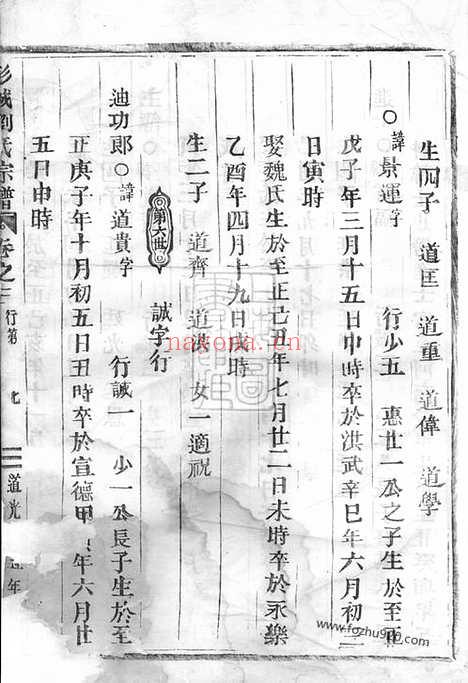 生四子 道匡 道重 道偉 道學
○諱景運字 行少五 惠廿一公之子生於至正
戊子年三月十五日申時卒於洪武辛巳年六月初二
日寅時
娶魏氏生於至正己丑年七月廿二日未時卒於永樂
乙酉年四月十九日戌時
生二子 道齊 道俠 女一適祝
第六世 誠字行
迪功郎○諱道貴字 行誠一 少一公長子生於至
正庚子年十月初五日丑時卒於宣德甲 年六月廿
五日申時
彭城劉氏宗譜 卷之二 行第 七 道光 年
nayona.cn
www.fozhu920.com